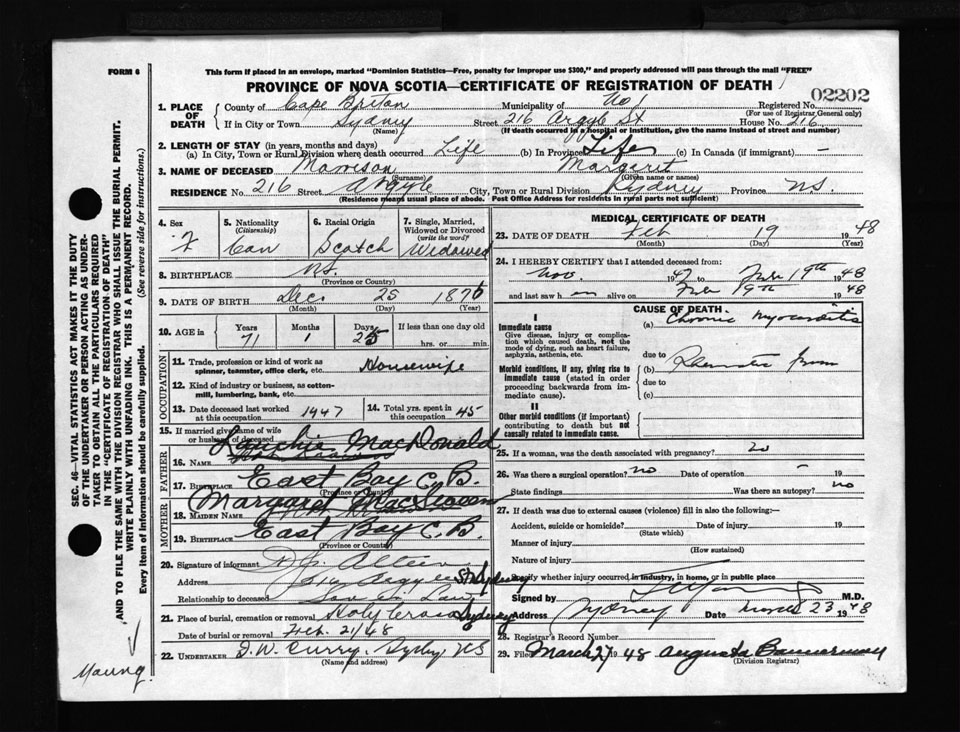 FORM 6
This form if placed in an envelope, marked "Dominion Statistics—Free, penalty for improper use $300," and properly addressed will pass through the mail "FREE"
PROVINCE OF NOVA SCOTIA—CERTIFICATE OF REGISTRATION OF DEATH
02202
1. PLACE OF DEATH
County of Cape Briton Municipality of No 1 Registered No.
(For use of Registrar General only)
If in City or Town Sydney Street 216 Argyle St House No. 216
(Name) (If death occurred in a hospital or institution, give the name instead of street and number)
2. LENGTH OF STAY (in years, months and days)
(a) In City, Town or Rural Division where death occurred Life (b) In Province Life (c) In Canada (if immigrant) —
3. NAME OF DECEASED Morrison Margaret
(Surname) (Given name or names)
RESIDENCE No. 216 Street Argyle City, Town or Rural Division Sydney Province N.S.
(Residence means usual place of abode. Post Office Address for residents in rural parts not sufficient)
4. Sex F
5. Nationality (Citizenship) Can
6. Racial Origin Scotch
7. Single, Married, Widowed or Divorced (write the word) Widowed
8. BIRTHPLACE N.S.
(Province or Country)
9. DATE OF BIRTH Dec. 25 1876
(Month) (Day) (Year)
10. AGE in Years 71 Months 1 Days 25 If less than one day old hrs. or min.
OCCUPATION
11. Trade, profession or kind of work as spinner, teamster, office clerk, etc. Housewife
12. Kind of industry or business, as cotton-mill, lumbering, bank, etc.
13. Date deceased last worked at this occupation 1947
14. Total yrs. spent in this occupation 45
15. If married give name of wife or husband of deceased
FATHER
16. Name Lauchie MacDonald
17. Birthplace East Bay C.B.
(Province or Country)
MOTHER
18. MAIDEN NAME Margaret
19. BIRTHPLACE East Bay C.B.
(Province or Country)
20. Signature of informant
Address 216 Argyle St Sydney
Relationship to deceased Son in Law
21. Place of burial, cremation or removal Holy Cross Sydney
Date of burial or removal Feb. 21/48
22. UNDERTAKER D.W. Curry, Sydney, N.S.
(Name and address)
MEDICAL CERTIFICATE OF DEATH
23. DATE OF DEATH Feb 19 1948
(Month) (Day) (Year)
24. I HEREBY CERTIFY that I attended deceased from:
Nov. 1947 to Feb 19th 1948
and last saw h er alive on Feb 19th 1948
CAUSE OF DEATH
I
Immediate cause
Give disease, injury or complication which caused death, not the mode of dying, such as heart failure, asphyxia, asthenia, etc.
(a) Chronic myocarditis
due to
Morbid conditions, if any, giving rise to immediate cause (stated in order proceeding backwards from immediate cause).
(b)
due to
(c)
II
Other morbid conditions (if important) contributing to death but not causally related to immediate cause.
25. If a woman, was the death associated with pregnancy? no
26. Was there a surgical operation? no Date of operation — 19
State findings Was there an autopsy? no
27. If death was due to external causes (violence) fill in also the following:—
Accident, suicide or homicide? Date of injury 19
(State which)
Manner of injury
(How sustained)
Nature of injury
Specify whether injury occurred in industry, in home, or in public place
Signed by M.D.
Address Sydney Date March 23 1948
28. Registrar's Record Number
29. Filed March 1948 Augusta Bannerman
(Division Registrar)
SEC. 46—VITAL STATISTICS ACT MAKES IT THE DUTY OF THE UNDERTAKER OR PERSON ACTING AS UNDERTAKER TO OBTAIN ALL THE PARTICULARS REQUIRED IN THE "CERTIFICATE OF REGISTRATION OF DEATH" AND TO FILE THE SAME WITH THE DIVISION REGISTRAR WHO SHALL ISSUE THE BURIAL PERMIT.
WRITE PLAINLY WITH UNFADING INK. THIS IS A PERMANENT RECORD.
Every item of information should be carefully supplied. (See reverse side for instructions.)
Young.